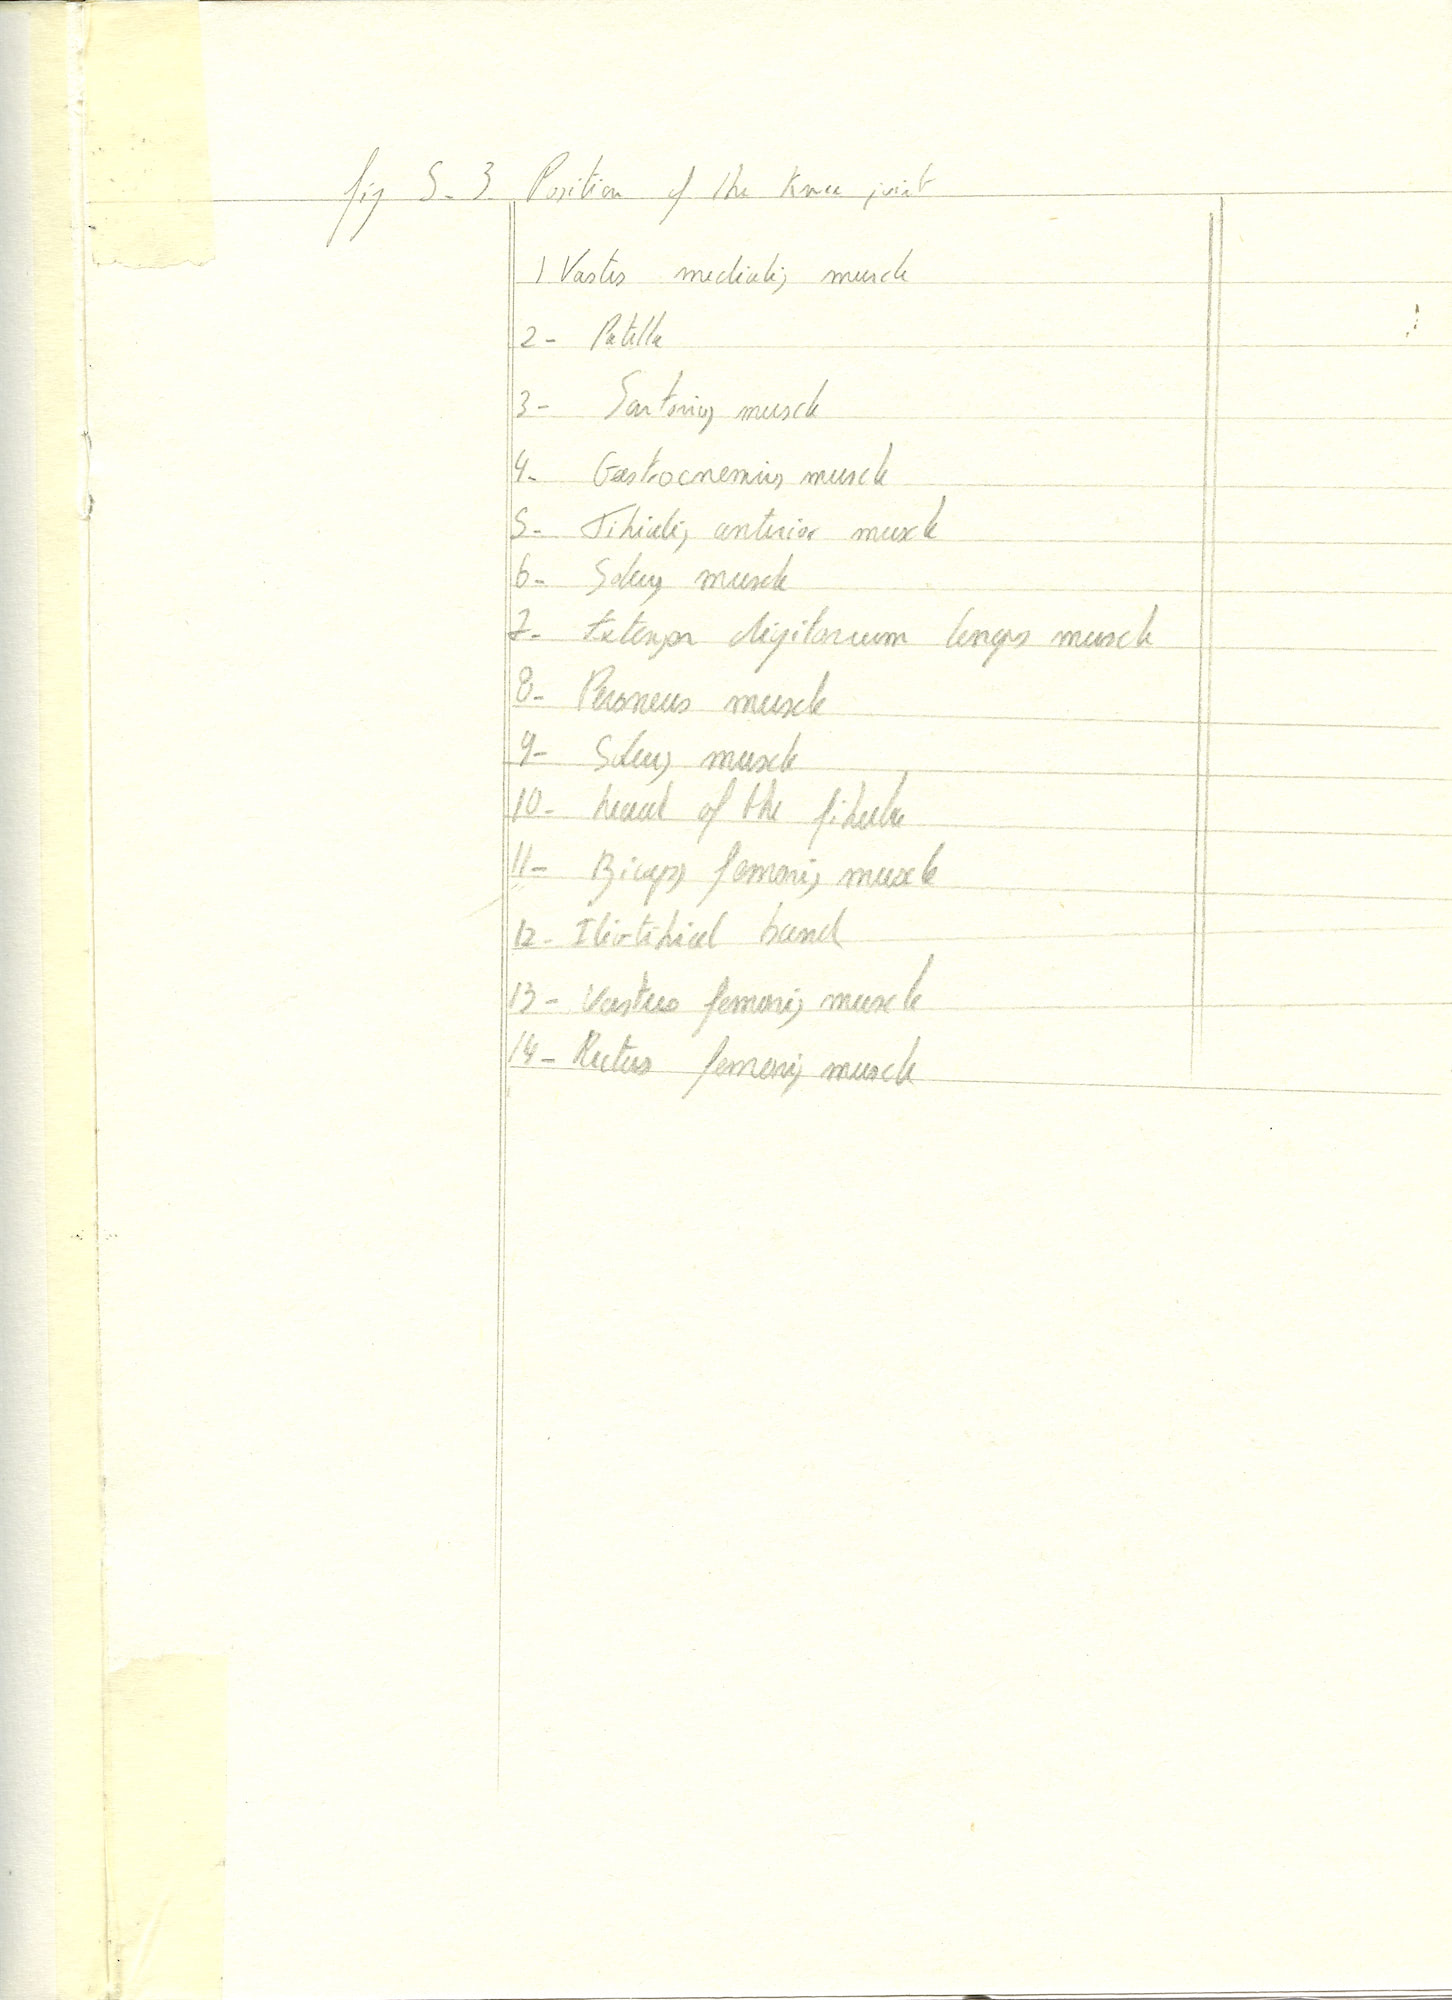 fig 5-3 Position of the Knee joint
1 Vastus medialis muscle
2- Patella
3- Sartorius muscle
4- Gastrocnemius muscle
5- Tibialis anterior muscle
6- Soleus muscle
7- Extensor digitorum longus muscle
8- Peroneus muscle
9- Soleus muscle
10- head of the fibula
11- Biceps femoris muscle
12- Ilio-tibial band
13- Vastus femoris muscle
14- Rectus femoris muscle